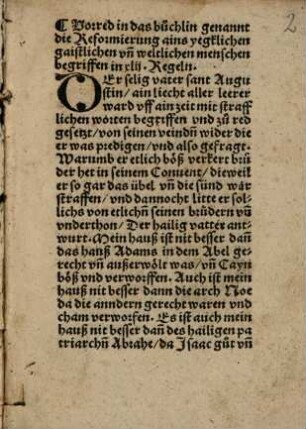 2
¶ Vorred in das büchlin genannt
die Reformierung ains yegklichen
gaistlichen vñ weltlichen menschen
begriffen in xlii. Regeln.
DEr selig vater sant Augu
stin/ain liecht aller leerer
ward vff ain zeit mit straff
lichen worten begriffen vnd zů red
gesetzt/von seinen veindñ wider die
er was predigen/vnd also gefragt.
Warumb er etlich böß verkert brů
der het in seinem Conuent/dieweil
er so gar das übel vñ die sünd wär
straffen/vnd dannocht litte er sol-
lichs von etlichñ seinen brüdern vñ
vnderthon/Der hailig vatter ant-
wurt. Mein hauß ist nit besser dañ
das hauß Adams in dem Abel ge-
recht vñ außerwölt was/vñ Cayn
böß vnd verworffen. Auch ist mein
hauß nit besser dann die arch Noe
da die anndern gerecht waren vnd
cham verworfen. Es ist auch mein
hauß nit besser dañ des hailigen pa
triarchñ Abrahe/da Isaac gůt vñ